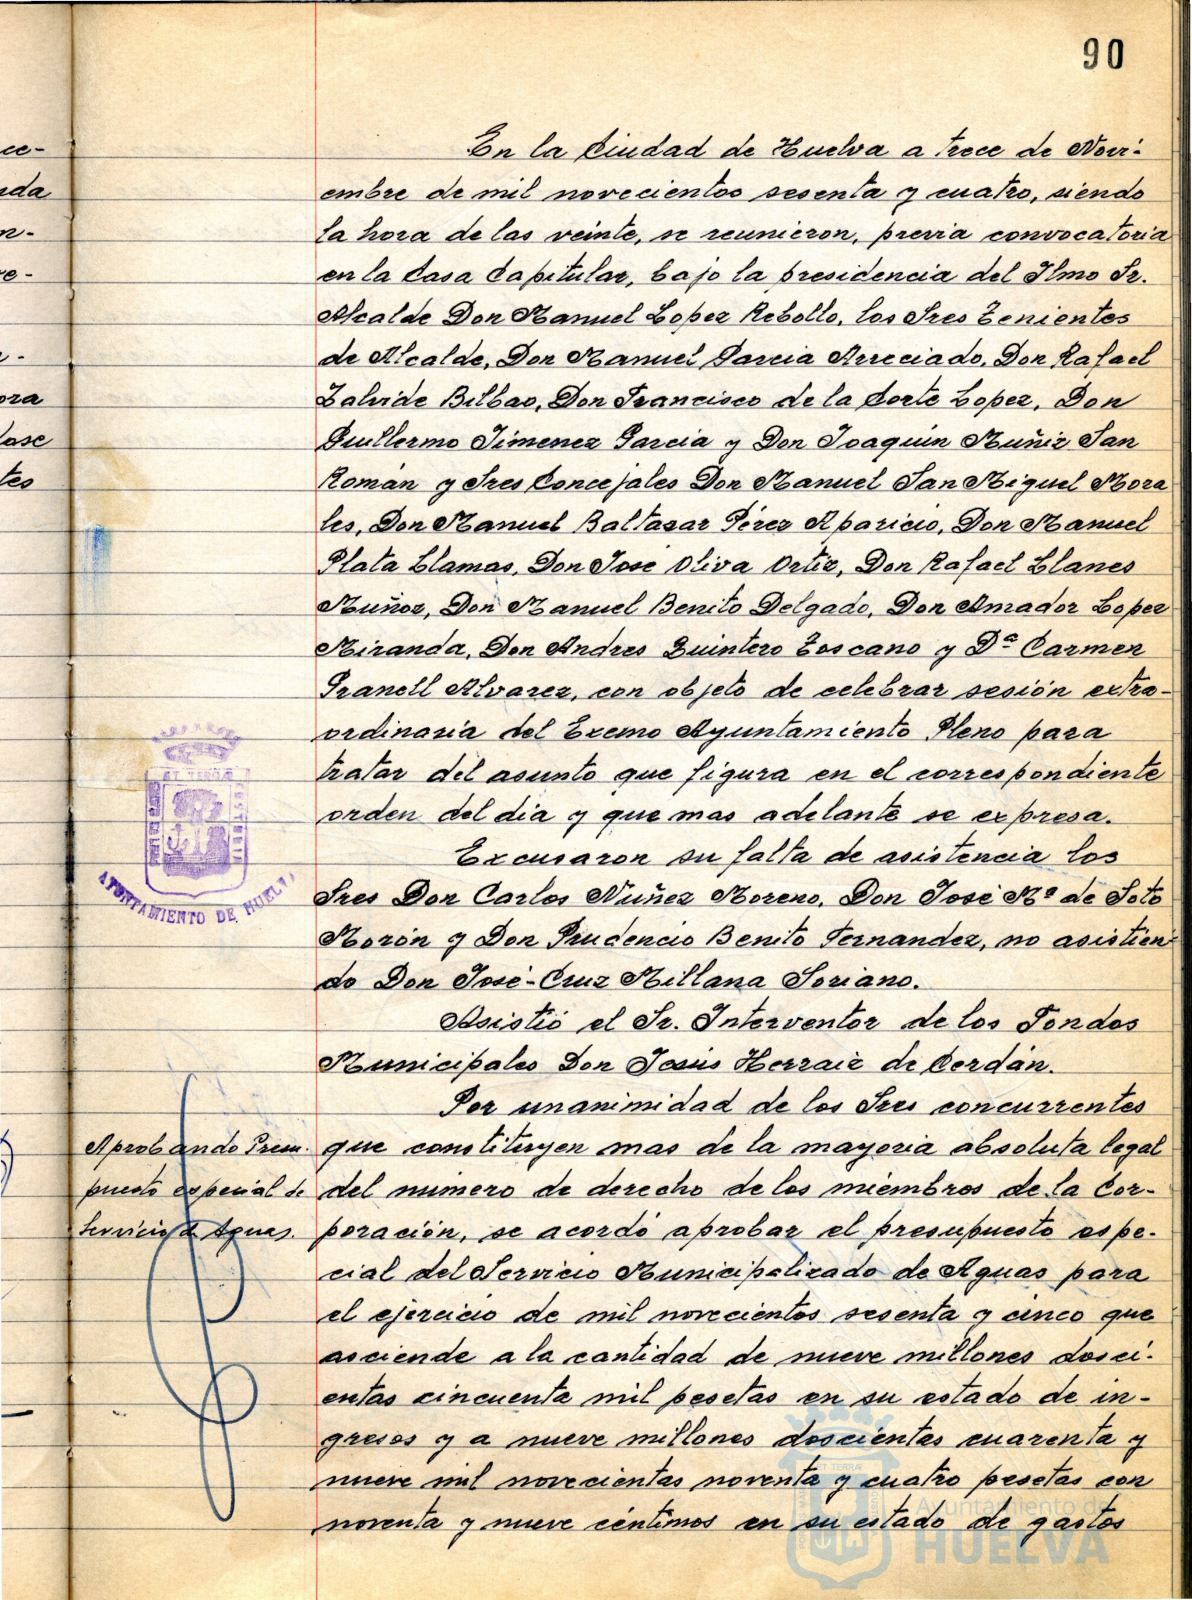 90
En la Ciudad de Huelva a trece de Novi-
embre de mil novecientos sesenta y cuatro, siendo
la hora de las veinte, se reunieron, previa convocatoria
en la Casa Capitular, bajo la presidencia del Ilmo Sr.
Alcalde Don Manuel Lopez Rebollo, los Sres Tenientes
de Alcalde, Don Manuel Garcia Arreciado, Don Rafael
Zalvide Bilbao, Don Francisco de la Corte Lopez, Don
Guillermo Jimenez Garcia y Don Joaquin Muñiz San
Román y Sres Concejales Don Manuel San Miguel Mora
les, Don Manuel Baltasar Pérez Aparicio, Don Manuel
Plata Llamas, Don José Oliva Ortiz, Don Rafael Llanes
Muñoz, Don Manuel Benito Delgado, Don Amador Lopez
Miranda, Don Andres Quintero Toscano y Dª Carmen
Granell Alvarez, con objeto de celebrar sesión extra-
ordinaria del Excmo Ayuntamiento Pleno para
tratar del asunto que figura en el correspondiente
orden del dia y que mas adelante se expresa.
Excusaron su falta de asistencia los
Sres Don Carlos Núñez Moreno, Don José Mª de Soto
Morón y Don Prudencio Benito Fernandez, no asistien-
do Don José-Cruz Millana Soriano.
Asistió el Sr. Interventor de los Fondos
Municipales Don Jesús Herraiz de Cerdán.
Por unanimidad de los Sres concurrentes
que constituyen mas de la mayoria absoluta legal
del número de derecho de los miembros de la Cor-
poración, se acordó aprobar el presupuesto espe-
cial del Servicio Municipalizado de Aguas para
el ejercicio de mil novecientos sesenta y cinco que
asciende a la cantidad de nueve millones dosci-
entas cincuenta mil pesetas en su estado de in-
gresos y a nueve millones doscientas cuarenta y
nueve mil novecientas noventa y cuatro pesetas con
noventa y nueve céntimos en su estado de gastos
Aprobando Presu-
puesto especial de
Servicio de Aguas.
AYUNTAMIENTO DE HUELVA
Ayuntamiento de
HUELVA
ce-
nda
n-
re-
ora
dose
tes